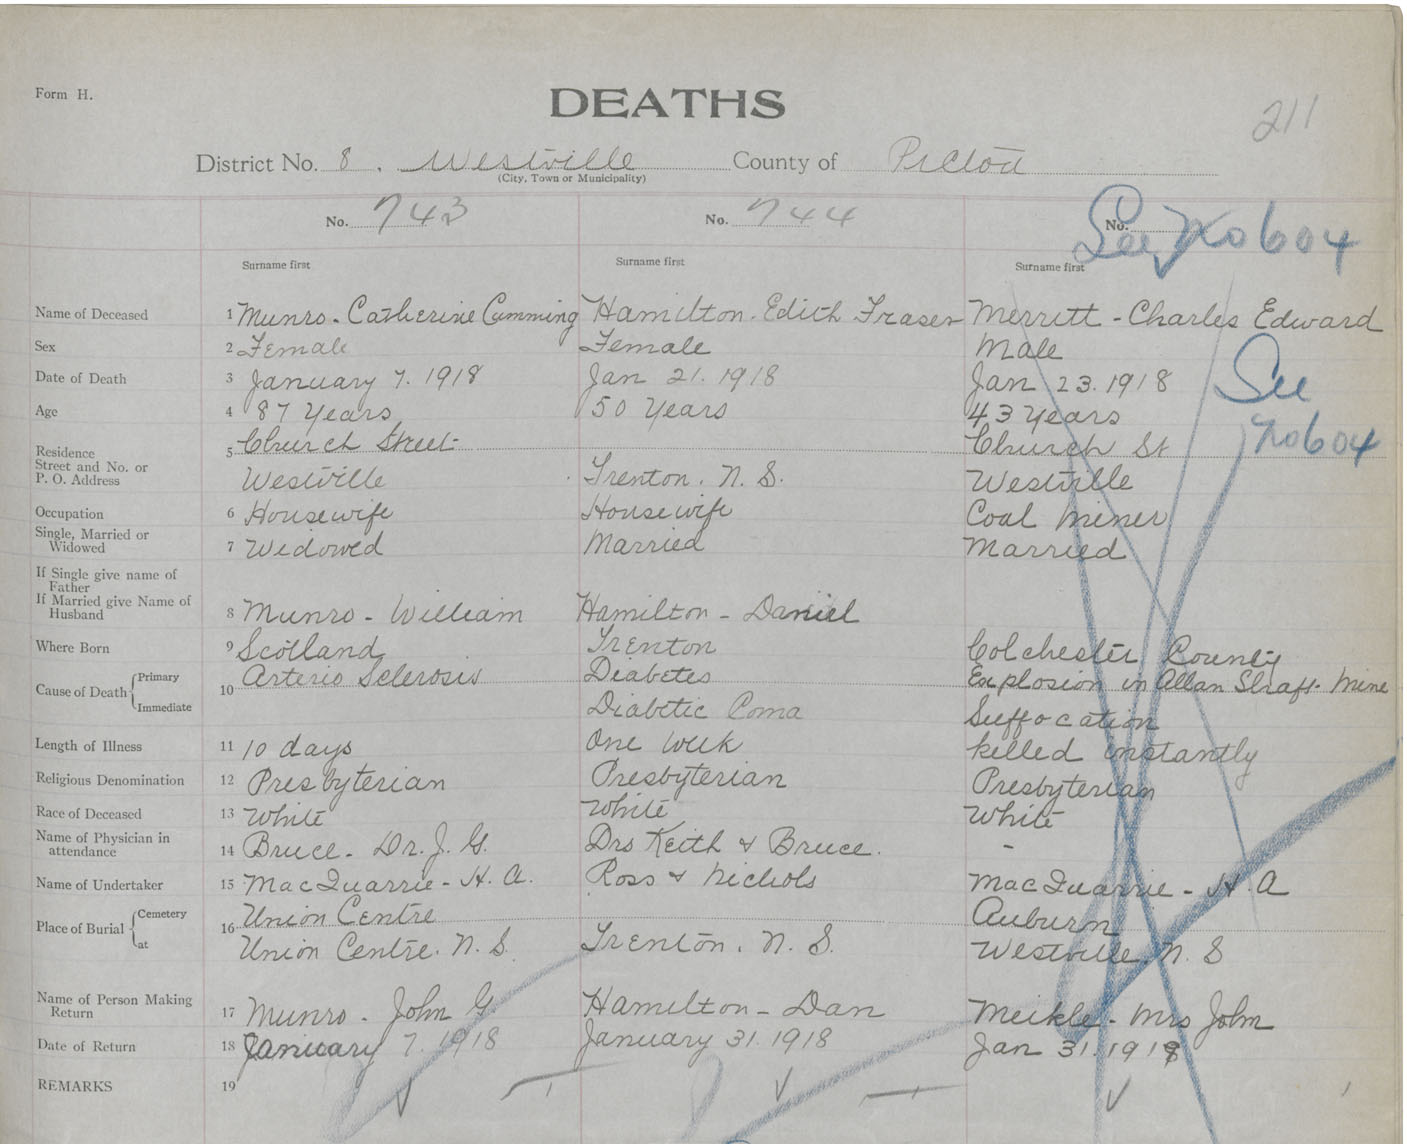 Form H.
DEATHS
211
District No. 8. Westville County of Pictou
(City, Town or Municipality)
No. 743 No. 744 No. See No 604
Surname first Surname first Surname first
Name of Deceased 1 Munro - Catherine Cumming Hamilton - Edith Fraser Merritt - Charles Edward
Sex 2 Female Female Male
Date of Death 3 January 7. 1918 Jan 21. 1918 Jan 23. 1918 See
Age 4 87 Years 50 Years 43 Years
Residence 5 Church Street Church St No 604
Street and No. or
P. O. Address Westville Trenton. N. S. Westville
Occupation 6 Housewife Housewife Coal Miner
Single, Married or
Widowed 7 Widowed Married Married
If Single give name of
Father
If Married give Name of
Husband 8 Munro - William Hamilton - Daniel
Where Born 9 Scotland Trenton Colchester County
Cause of Death Primary 10 Arterio Sclerosis Diabetes Explosion in Allan Shaft - Mine
Immediate Diabetic Coma Suffocation
Length of Illness 11 10 days One Week killed instantly
Religious Denomination 12 Presbyterian Presbyterian Presbyterian
Race of Deceased 13 White White White
Name of Physician in
attendance 14 Bruce - Dr. J. G. Drs Keith & Bruce. -
Name of Undertaker 15 MacQuarrie - H. A. Ross & Nichols MacQuarrie - H. A
Place of Burial Cemetery 16 Union Centre Auburn
at Union Centre. N. S. Trenton. N. S. Westville. N. S
Name of Person Making
Return 17 Munro - John G Hamilton - Dan Meikle - Mrs John
Date of Return 18 January 7. 1918 January 31. 1918 Jan 31. 1918
REMARKS 19